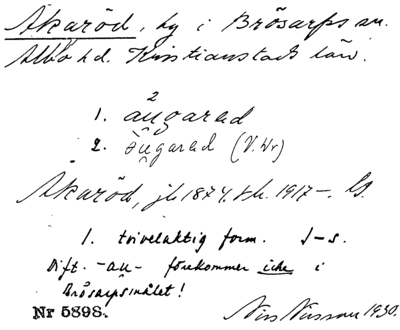 Akaröd, by i Brösarps sn.
Albo hd. Kristianstads län.
2
1. au̯garad
2. garad (V. Wr)
Akaröd, jb 1874. 1917–.
1. tvivelaktig form. J–s.
Dift. -au̯- förekommer icke i
Brösarpsmålet!
Nr 5898. Nils Nilsson 1930.